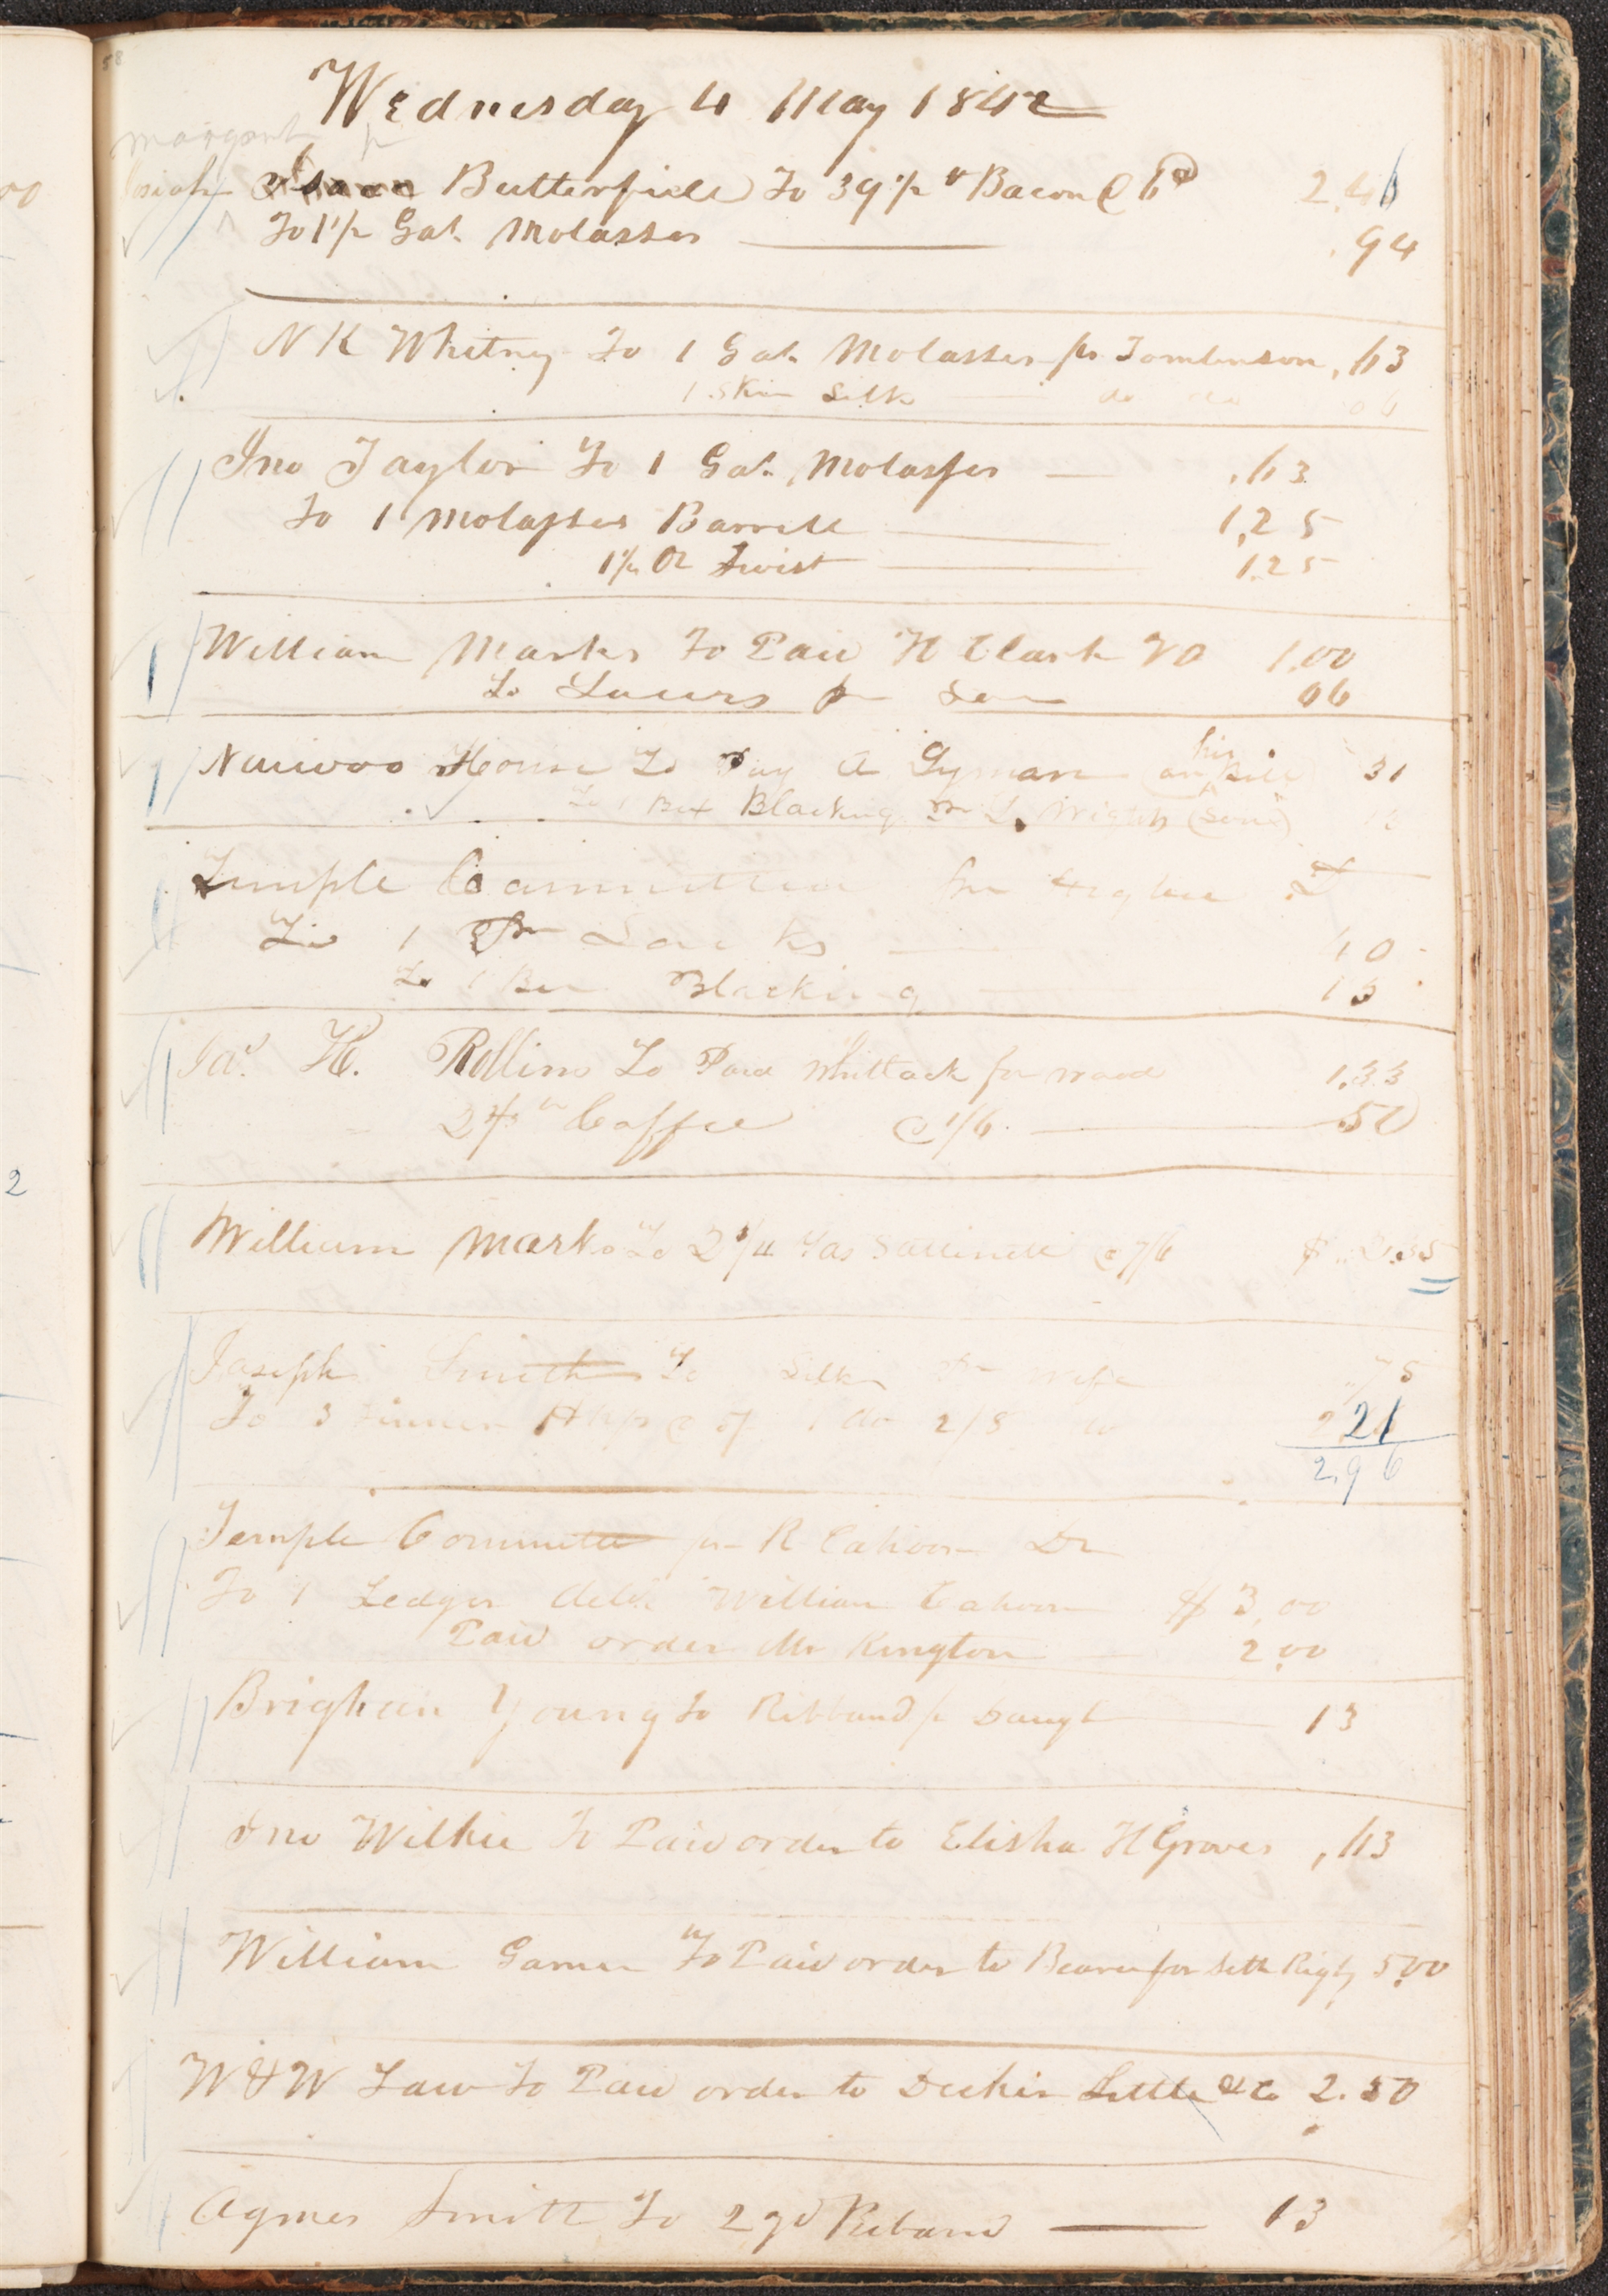 58
Wednesday 4 May 1842
margaret pr
Josiah Butterfield To 39 1/2 lb Bacon @ 6
2.46
To 1 1/2 Gal. Molasses
.94
N K Whitney To 1 Gal. Molasses pr Tomlinson .63
1 Skein Silk do do 06
Jno Taylor To 1 Gal. Molasses .63
To 1 Molasses Barrell 1,25
1 1/4 Oz Twist 1.25
William Marks To Paid H Clark VO 1.00
To for Son 06
his
Nauvoo House To Pay A Lyman on Bill 31
To 1 Box Blacking pr L. Wright (Son) 13
Temple Committee pr Higbee D
To 1 Pr Socks 40
To 1 Box Blacking 13
Jas. H. Rollins To Paid Whitlock for wood 1.33
2 lbs Coffee @ 1/6 50
William Marks To 2 1/4 Yds Sattinett @ 7/6 $
Joseph Smith To Silk pr wife 75
To 3 1 do 2/8 do 2 21
2.96
Temple Committee pr R Cahoon Dr
To 1 Ledger deld. William Cahoon $ 3,00
Paid order Mr Kington 2.00
Brigham Young To Ribband pr Daught 13
Jno Wilkie To Paid order to Elisha H Groves ,63
William Garner To Paid order to Bearer for Seth Rigby 5.00
W & W Law To Paid order to Decker Little & Co 2.50
Agnes Smith To 2 yd Riband 13
00
2